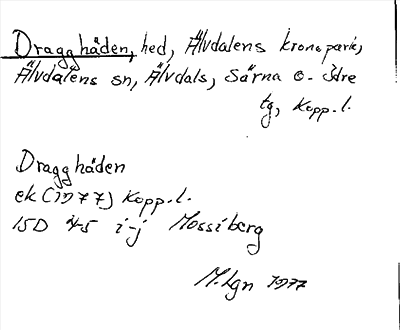 Dragghäden, hed, Älvdalens kronopark,
Älvdalens sn, Älvdals, Särna o. Idre
tg, Kopp. l.
Dragghäden
ek (1977) Kopp. l.
15D 4-5 i-j Mossiberg
M. Lgn 1977